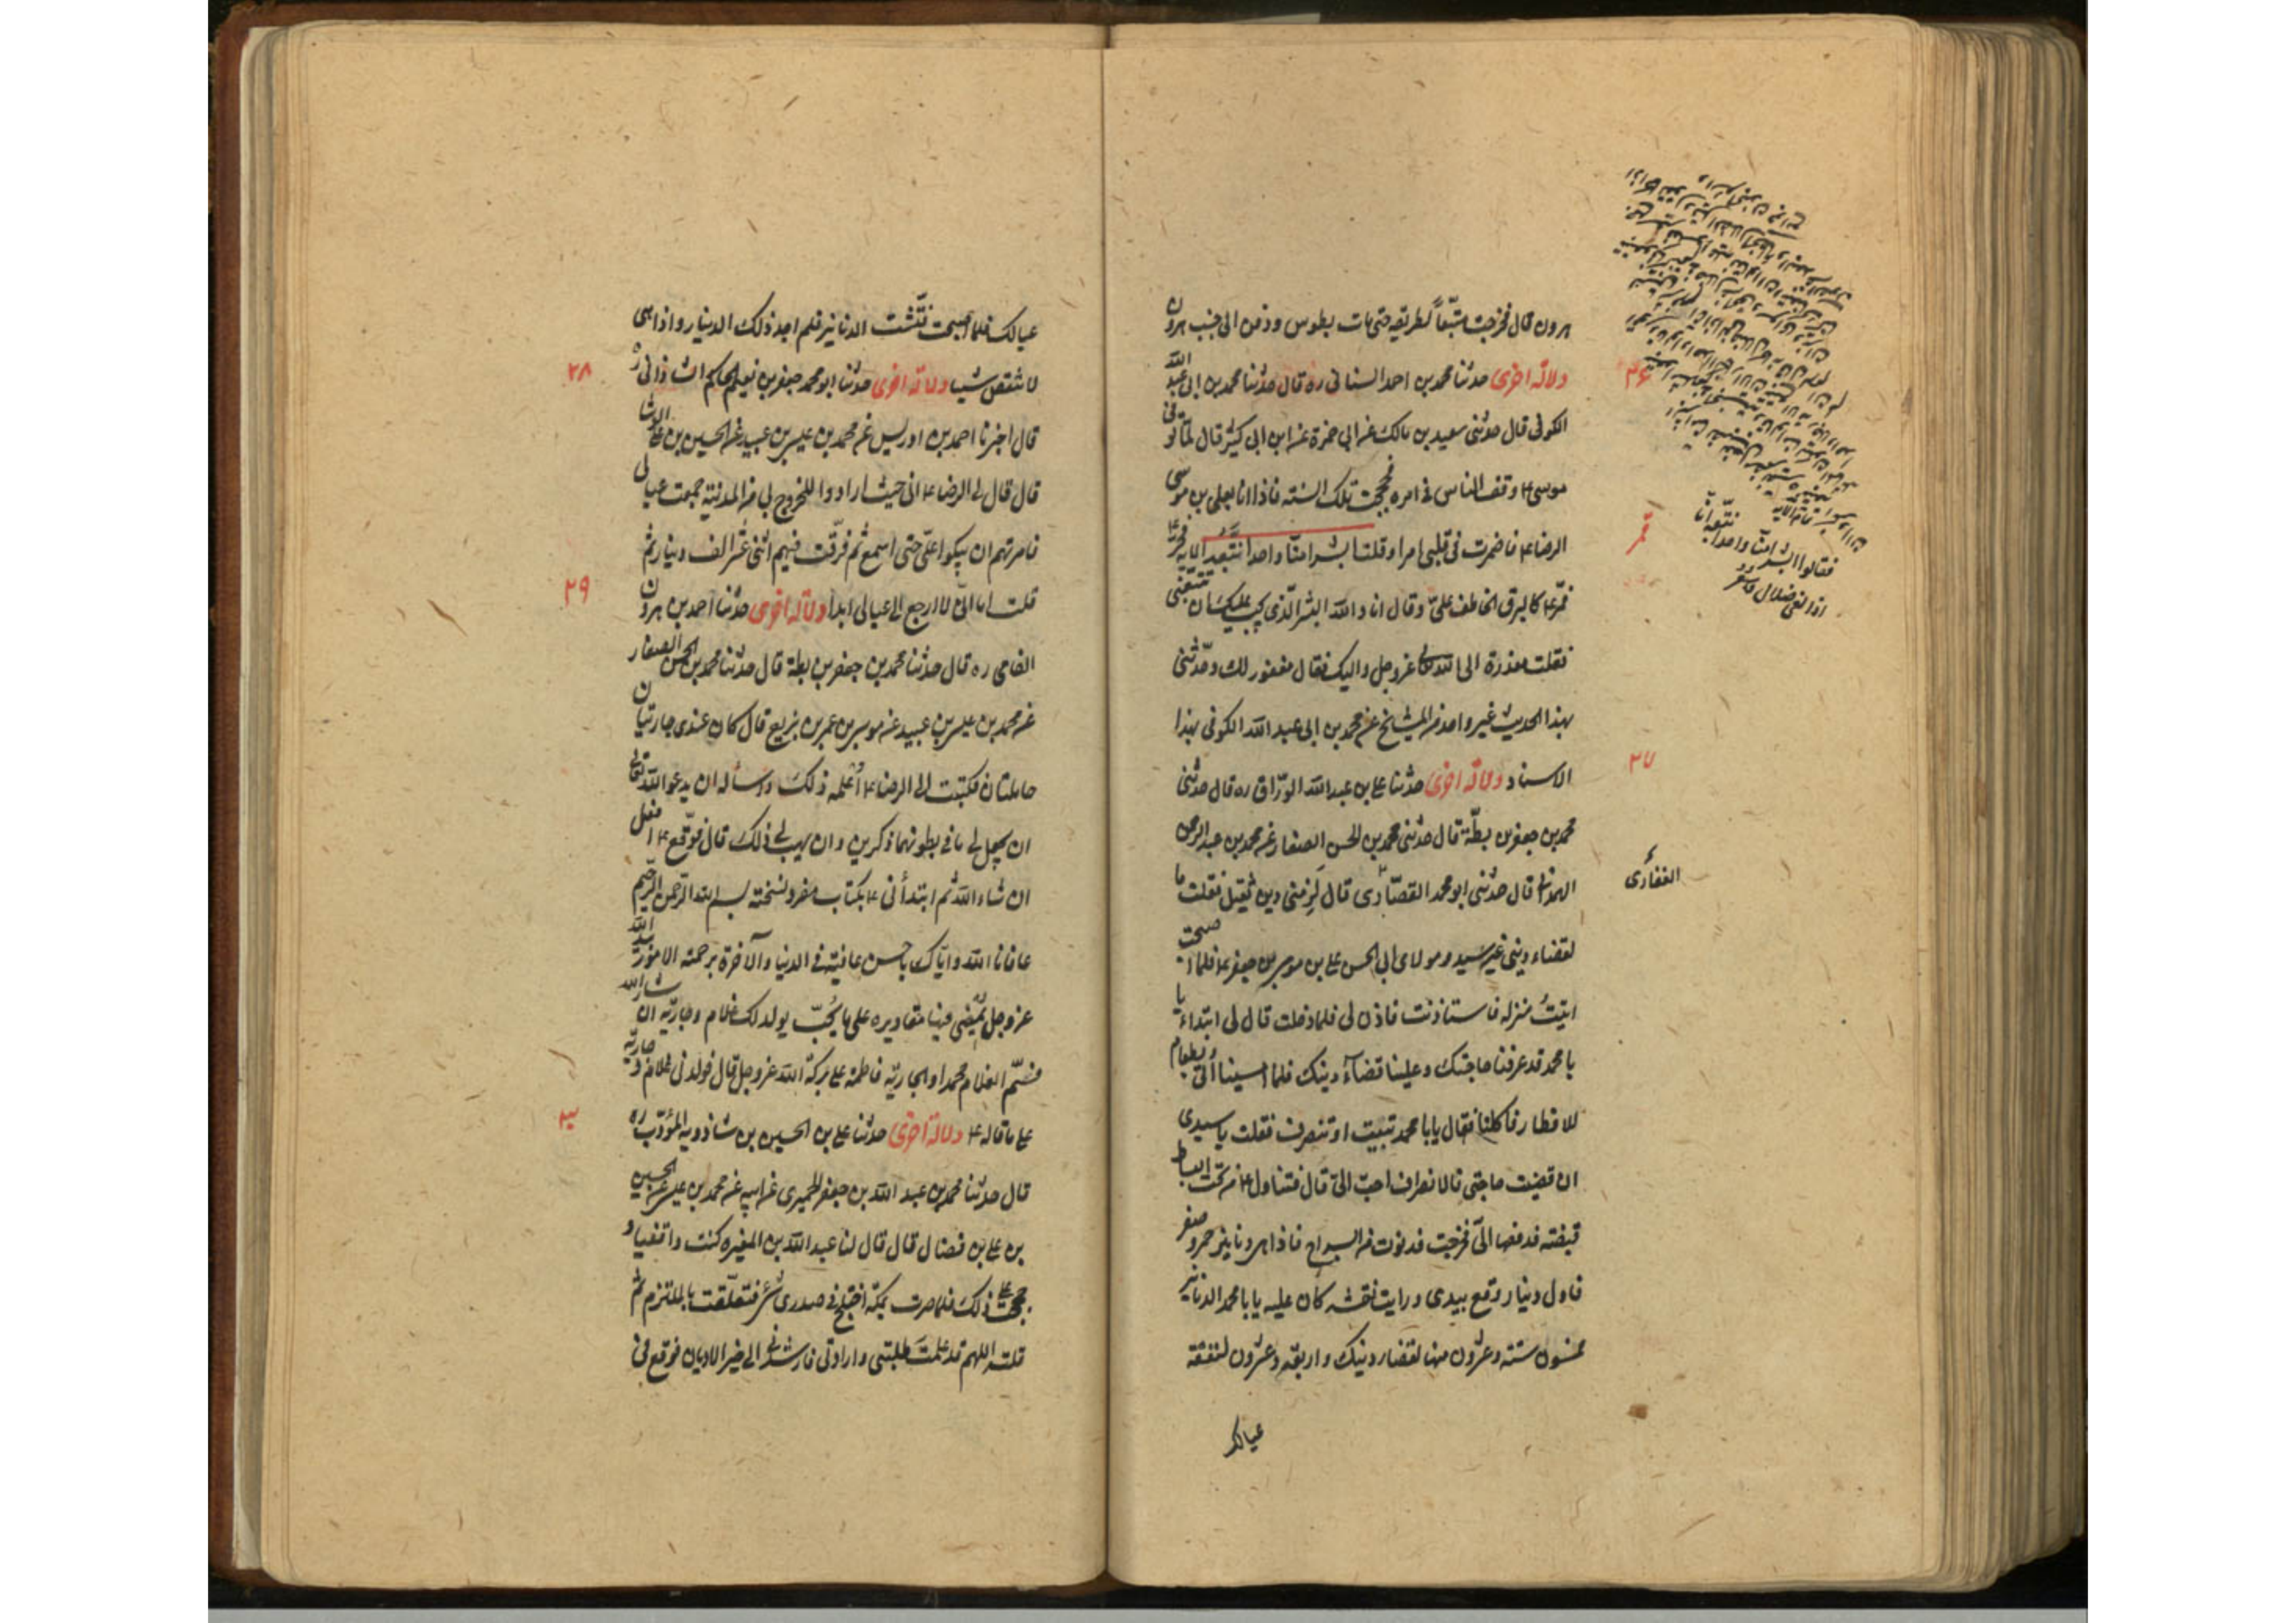 هرون قال فخرجت متبّعاً لطريقه حتى مات بطوس ودفن الى جنب هرون
دلالة اخرى حدثنا محمد بن احمد السنانى ره قال حدثنا محمد بن ابى عبد الله
الكوفى قال حدثنى سعيد بن مالك عن ابى حمزة عن ابن ابى كثير قال لما توفى
موسى ع وقف الناس فى امره فحججت تلك السنة فاذا انا بعلى بن موسى
الرضا ع فاضمرت فى قلبى امرا وقلت ابشرا منّا واحدا نتّبعه الاية فمرّ
ع كالبرق الخاطف علىّ وقال انا والله البشر الذى يجب عليك ان تتبعنى
فقلت معذرة الى الله تعالى عز وجل واليك فقال مغفور لك وحدّثنى
بهذا الحديث غير واحد من المشايخ عن محمد بن ابى عبد الله الكوفى بهذا
الاسناد دلالة اخرى حدثنا على بن عبد الله الورّاق ره قال حدثنى
محمد بن جعفر بن بطّة قال حدثنى محمد بن الحسن الصفار عن محمد بن عبد الرحمن
الهمدانى قال حدثنى ابو محمد القصّارى قال لزمنى دين ثقيل فقلت ما
لقضاء دينى غير سيد ومولاى ابى الحسن على بن موسى بن جعفر ع فلما اصبحت
اتيت منزله فاستاذنت فاذن لى فلما دخلت قال لى ابتداء يا
با محمد قد عرفنا حاجتك وعلينا قضاء دينك فلما امسينا اتى بطعام
للافطار فاكلنا فقال يا با محمد تبيت او تنصرف فقلت يا سيدى
ان قضيت حاجتى فالانصراف احبّ الىّ قال فتناول ع من تحت البساط
قبضة فدفعها الىّ فخرجت فدنوت من السراج فاذا هى دنانير حمر وصفر
فاول دينار وقع بيدى ورايت نقشه كان عليه يا با محمد الدنانير
خمسون ستة وعشرون منها لقضاء دينك واربعة وعشرون لنفقة
عيالك
٢٦
فقالوا ابشرا منّا واحدا نتّبعه انّا
اذا لفى ضلال وسعر
قمر
٢٧
الغفارى
عيالك فلما اصبحت فتّشت الدنانير فلم اجد ذلك الدينار واذا هى
لا تنقص شيا دلالة اخرى حدثنا ابو محمد جعفر بن نعيم الحاكم الشاذانى ره
٢٨
قال اخبرنا احمد بن ادريس عن محمد بن عيسى بن عبيد عن الحسين بن على الوشا
قال قال لى الرضا ع انى حيث ارادوا الخروج بى من المدينة جمعت عيالى
فامرتهم ان يبكوا علىّ حتى اسمع ثم فرّقت فيهم اثنى عشر الف دينار ثم
قلت اما انّى لا ارجع الى عيالى ابدا دلالة اخرى حدثنا احمد بن هرون
٢٩
الفامى ره قال حدثنا محمد بن جعفر بن بطة قال حدثنا محمد بن الحسن الصفار
عن محمد بن عيسى بن عبيد عن موسى بن عمر بن بزيع قال كان عندى جاريتان
حاملتان فكتبت الى الرضا ع اُعلمه ذلك واسأله ان يدعو الله تعالى
ان يجعل لى ما فى بطونهما ذكرين وان يهب لى ذلك قال فوقّع ع افعل
ان شاء الله ثم ابتدأنى ع بكتاب مفرد نسخته بسم الله الرحمن الرحيم
عافانا الله واياك باحسن عافية فى الدنيا والآخرة برحمته الامور بيد الله
عز وجل يُمضى فيها مقاديره على ما يُحبّ يولد لك غلام وجارية ان شاء الله
فسمّ الغلام محمدا والجارية فاطمة على بركة الله عز وجل قال فولد لى غلام وجارية
على ما قاله ع دلالة اخرى حدثنا على بن الحسين بن شاذويه المؤدّب ره
٣٠
قال حدثنا محمد بن عبد الله بن جعفر الحميرى عن ابيه عن محمد بن عيسى عن الحسين
بن على بن فضال قال قال لنا عبد الله بن المغيرة كنت واقفيا و
حججت على ذلك فلما صرت بمكة اختلج فى صدرى شئ فتعلّقت بالملتزم ثم
قلت اللهم قد علمت طلبتى وارادتى فارشدنى الى خير الاديان فوقع فى